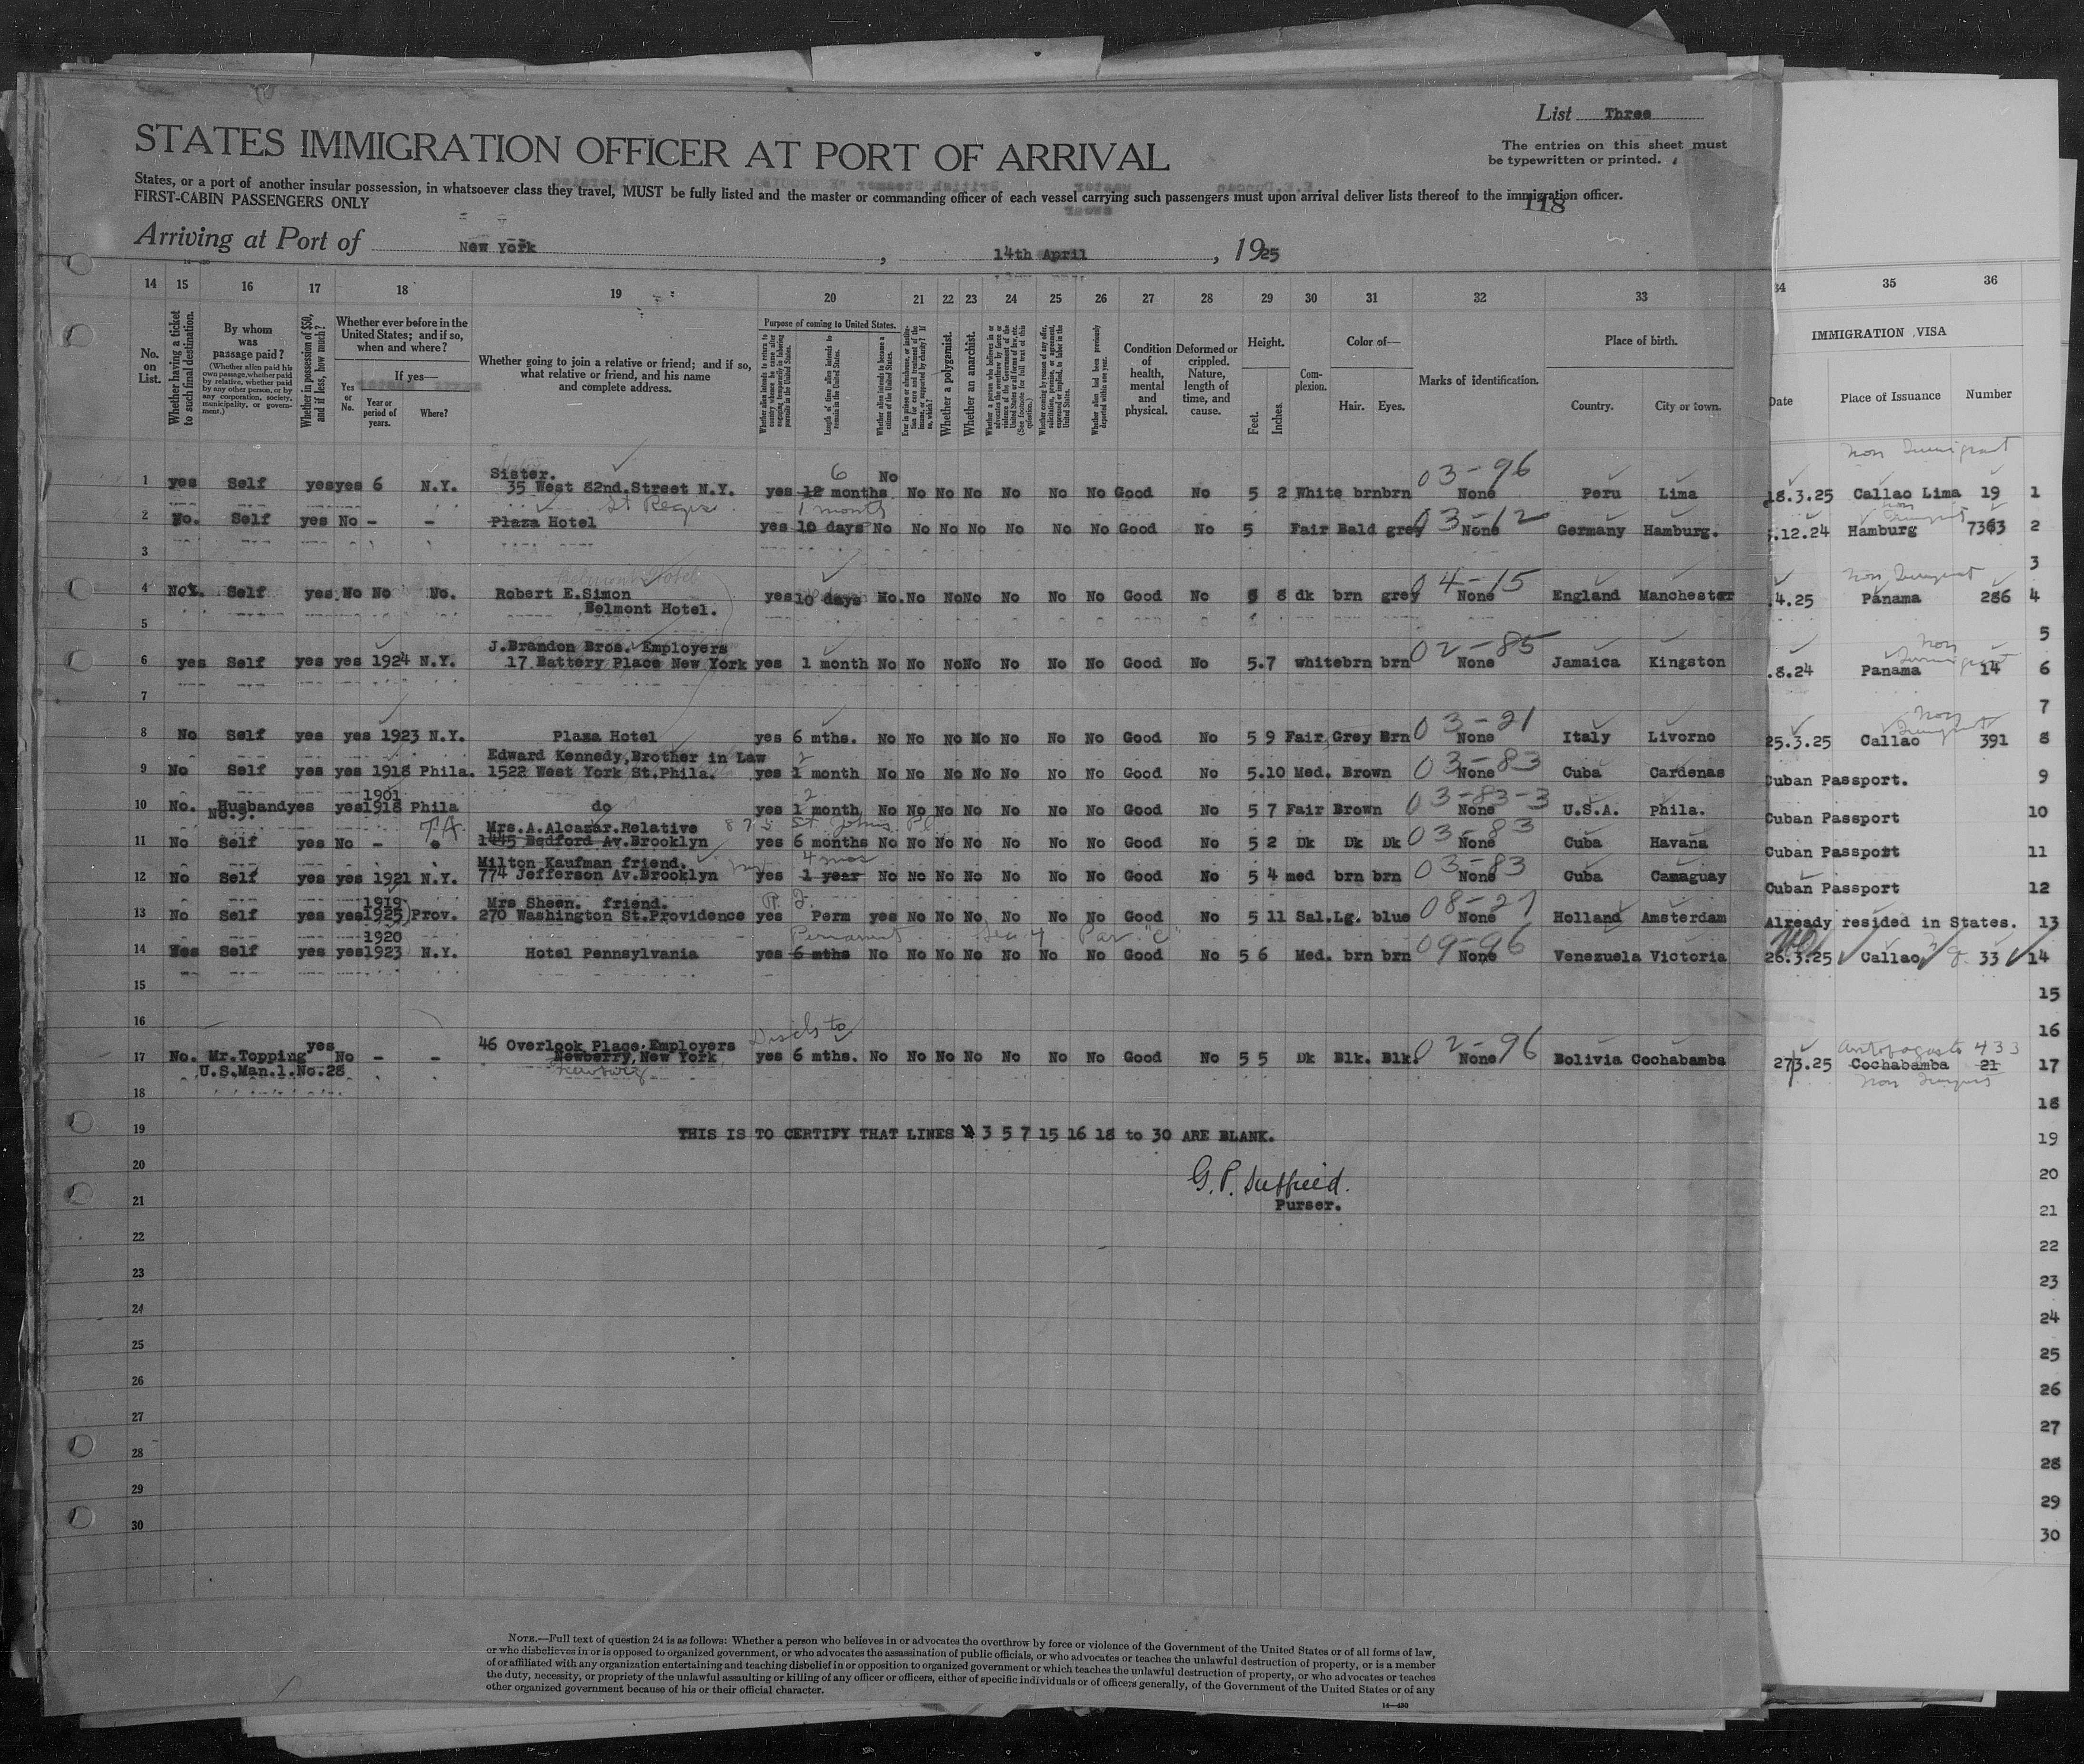 List Three
STATES IMMIGRATION OFFICER AT PORT OF ARRIVAL
The entries on this sheet must
be typewritten or printed.
States, or a port of another insular possession, in whatsoever class they travel, MUST be fully listed and the master or commanding officer of each vessel carrying such passengers must upon arrival deliver lists thereof to the immigration officer.
FIRST-CABIN PASSENGERS ONLY
118
Arriving at Port of New York, 14th April, 1925
14 15 16 17 18 19 20 21 22 23 24 25 26 27 28 29 30 31 32 33 34 35 36
No. on List.
Whether having a ticket to such final destination.
By whom was passage paid?
(Whether alien paid his own passage, whether paid by relative, whether paid by any other person, or by any corporation, society, municipality, or government.)
Whether in possession of $50, and if less, how much?
Whether ever before in the United States; and if so, when and where?
Yes or No.
If yes—
Year or period of years.
Where?
Whether going to join a relative or friend; and if so, what relative or friend, and his name and complete address.
Purpose of coming to United States.
Whether alien intends to return to country whence he came after engaging temporarily in laboring pursuits in the United States.
Length of time alien intends to remain in the United States.
Whether alien intends to become a citizen of the United States.
Ever in prison or almshouse, or institution for care and treatment of the insane, or supported by charity? If so, which?
Whether a polygamist.
Whether an anarchist.
Whether a person who believes in or advocates the overthrow by force or violence of the Government of the United States or all forms of law, etc. (See footnote for full text of this question.)
Whether coming by reason of any offer, solicitation, promise, or agreement, expressed or implied, to labor in the United States.
Whether alien had been previously deported within one year.
Condition of health, mental and physical.
Deformed or crippled. Nature, length of time, and cause.
Height.
Feet. Inches.
Complexion.
Color of—
Hair. Eyes.
Marks of identification.
Place of birth.
Country. City or town.
IMMIGRATION VISA
Date Place of Issuance Number
Non Immigrant
6 No 03-96
Sister.
1 yes Self yes yes 6 N.Y. 35 West 82nd.Street N.Y. yes 12 months No No No No No No Good No 5 2 White brn brn None Peru Lima 18.3.25 Callao Lima 19 1
St Regis 1 month 03-12
2 No. Self yes No - - Plaza Hotel yes 10 days No No No No No No No Good No 5 Fair Bald grey None Germany Hamburg. .12.24 Hamburg 7363 2
3 3
Belmont Hotel 04-15 Non Immigrant
4 No. Self yes No No No. Robert E.Simon yes 10 days No. No No No No No No Good No 5 8 dk brn grey None England Manchester .4.25 Panama 286 4
Belmont Hotel.
5 5
J.Brandon Bros. Employers 02-85 Non Immigrant
6 yes Self yes yes 1924 N.Y. 17 Battery Place New York yes 1 month No No No No No No No Good No 5.7 white brn brn None Jamaica Kingston .8.24 Panama 14 6
7 7
03-21 Non Immigrant
8 No Self yes yes 1923 N.Y. Plaza Hotel yes 6 mths. No No No No No No No Good No 5 9 Fair Grey Brn None Italy Livorno 25.3.25 Callao 391 8
Edward Kennedy,Brother in Law 2 03-83
9 No Self yes yes 1918 Phila. 1522 West York St.Phila. yes 1 month No No No No No No No Good No 5.10 Med. Brown None Cuba Cardenas Cuban Passport. 9
1901 2 03-83-3
10 No. Husband yes yes 1918 Phila do yes 1 month No No No No No No No Good No 5 7 Fair Brown None U.S.A. Phila. Cuban Passport 10
No.9.
Mrs.A.Alcazar.Relative 875 St Johns Pl 03-83
11 No Self yes No - 1445 Bedford Av.Brooklyn yes 6 months No No No No No No No Good No 5 2 Dk Dk Dk None Cuba Havana Cuban Passport 11
Milton Kaufman friend. 4 mos 03-83
12 No Self yes yes 1921 N.Y. 774 Jefferson Av.Brooklyn yes 1 year No No No No No No No Good No 5 4 med brn brn None Cuba Camaguay Cuban Passport 12
1919 Mrs Sheen. friend. 08-27
13 No Self yes yes 1925 Prov. 270 Washington St.Providence yes Perm yes No No No No No No Good No 5 11 Sal.Lg. blue None Holland Amsterdam Already resided in States. 13
1920 Permanent Sec 4 Par "C" 09-96
14 Yes Self yes yes 1923 N.Y. Hotel Pennsylvania yes 6 mths No No No No No No No Good No 5 6 Med. brn brn None Venezuela Victoria 26.3.25 Callao 33 14
15 15
16 16
yes 46 Overlook Place.Employers 02-96 Antofagasta 433
17 No. Mr.Topping No - - Newberry,New York yes 6 mths. No No No No No No No Good No 5 5 Dk Blk. Blk. None Bolivia Cochabamba 27.3.25 Cochabamba 21 17
U.S.Man.1.No.28 Non Immigrant
18 18
19 THIS IS TO CERTIFY THAT LINES 3 5 7 15 16 18 to 30 ARE BLANK. 19
20 20
G. P. Duffield.
21 Purser. 21
22 22
23 23
24 24
25 25
26 26
27 27
28 28
29 29
30 30
NOTE.—Full text of question 24 is as follows: Whether a person who believes in or advocates the overthrow by force or violence of the Government of the United States or of all forms of law,
or who disbelieves in or is opposed to organized government, or who advocates the assassination of public officials, or who advocates or teaches the unlawful destruction of property, or is a member
of or affiliated with any organization entertaining and teaching disbelief in or opposition to organized government or which teaches the unlawful destruction of property, or who advocates or teaches
the duty, necessity, or propriety of the unlawful assaulting or killing of any officer or officers, either of specific individuals or of officers generally, of the Government of the United States or of any
other organized government because of his or their official character.
14—430